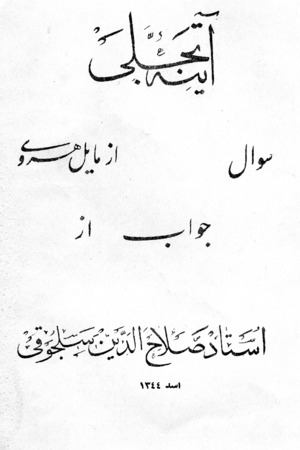 آئینه تجلی
سوال از مایل هروی
جواب از
استاد صلاح الدین سلجوقی
اسد ۱۳۴۴